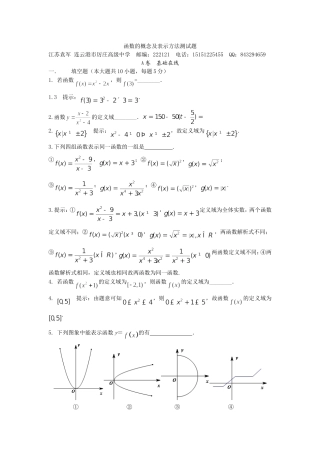 函数的概念及表示方法测试题
江苏袁军 连云港市厉庄高级中学 邮编：222121 电话：15151225455 QQ：843294659
A卷 基础在线
一、 填空题（本大题共10小题，每题5分）
1. 若函数 f(x)=x²-2x，则 f(3)= ________.
1.3 提示： f(3)=3²-2×3=3
2.函数 y=(x-2)/(x²-4) 的定义域________. x=150-50(t-5/2)=
2. {x|x¹ ±2}. 提示： x²-4¹ 0Þ x¹ ±2，故定义域为{x|x¹ ±2}.
3.下列四组函数表示同一函数的一组是________.
① f(x)=(x²-9)/(x-3)， g(x)=x+3；② f(x)=(√x)²， g(x)=√x²；
③ f(x)=1/(x²+3)， g(x)=x²/(x⁴+3x²)；④ f(x)=(√x)²， g(x)=x.
3.提示：① f(x)=(x²-9)/(x-3)=x+3,(x¹ 3)， g(x)定义域为全体实数，两个函数
定义域不同；② f(x)=(√x)²(x³ 0)， g(x)=√x²=x,xÎ R)，两函数解析式不同；
③ f(x)=1/(x²+3)(xÎ R)， f(x)=x²/(x⁴+3x²)=1/(x²+3)(x¹ 0)两函数定义域不同；④两
函数解析式相同，定义域也相同故两函数为同一函数.
4. 若函数 f(x²+1) 的定义域为[-2,1)，则 f(x) 的定义域为________.
4. [0,5] 提示：由题意可知 0£ x²£ 4，则 0£ x²+1£ 5，故函数 f(x) 的定义域为
[0,5].
5. 下列图象中能表示函数 y= f(x) 的有________.
y x O
y x O
y x O
y x O
① ② ③ ④